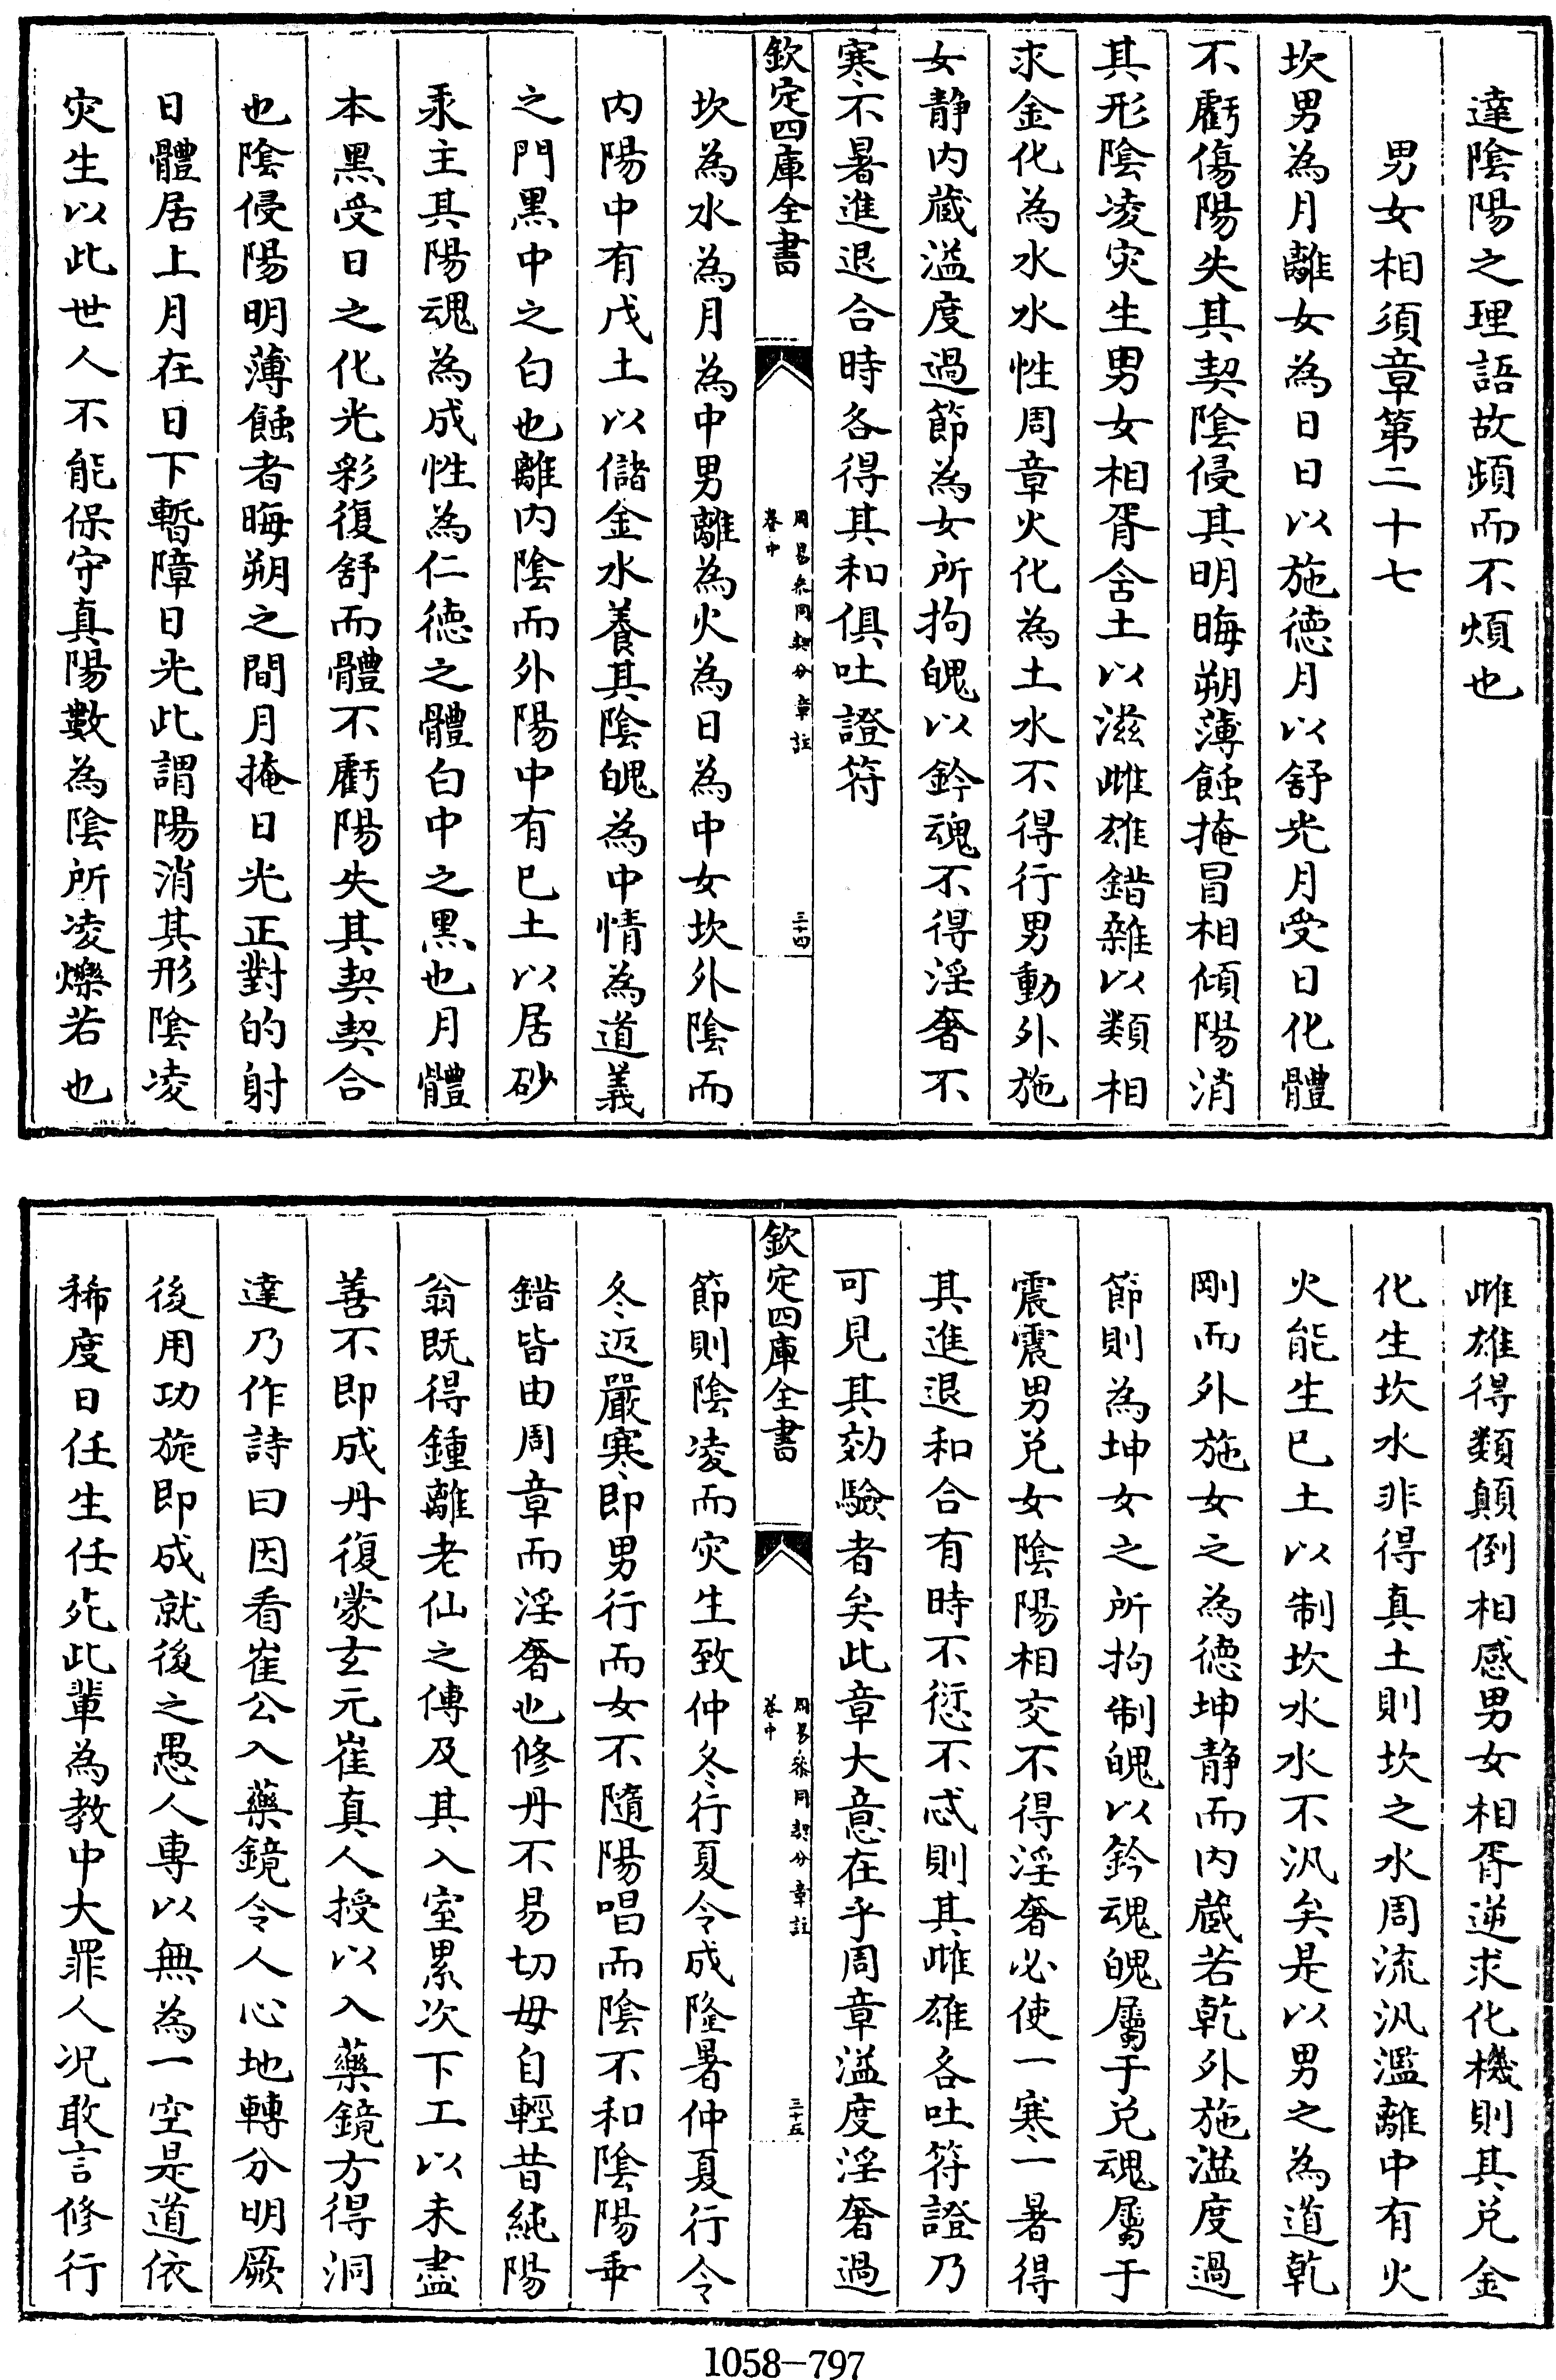 達陰陽之理語故頻而不煩也
男女相須章第二十七
坎男為月離女為日日以施德月以舒光月受日化體
不虧傷陽失其契陰侵其明晦朔薄蝕掩冒相傾陽消
其形陰凌災生男女相胥含土以滋雌雄錯雜以類相
求金化為水水性周章火化為土水不得行男動外施
女靜内藏溢度過節為女所拘魄以鈐魂不得淫奢不
寒不暑進退合時各得其和俱吐證符
欽定四庫全書
周易參同契分章註
卷中
三十四
坎為水為月為中男離為火為日為中女坎外陰而
内陽中有戊土以儲金水養其陰魄為中情為道義
之門黑中之白也離内陰而外陽中有巳土以居砂
汞主其陽魂為成性為仁德之體白中之黑也月體
本黑受日之化光彩復舒而體不虧陽失其契契合
也陰侵陽明薄蝕者晦朔之間月掩日光正對的射
日體居上月在日下暫障日光此謂陽消其形陰凌
災生以此世人不能保守真陽數為陰所凌爍若也
雌雄得類顛倒相感男女相胥逆求化機則其兌金
化生坎水非得真土則坎之水周流汎濫離中有火
火能生巳土以制坎水水不汎矣是以男之為道乾
剛而外施女之為德坤靜而内藏若乾外施溢度過
節則為坤女之所拘制魄以鈐魂魄屬于兌魂屬于
震震男兌女陰陽相交不得淫奢必使一寒一暑得
其進退和合有時不愆不忒則其雌雄各吐符證乃
可見其効驗者矣此章大意在乎周章溢度淫奢過
欽定四庫全書
周易參同契分章註
卷中
三十五
節則陰凌而災生致仲冬行夏令成隆暑仲夏行令
冬返嚴寒即男行而女不隨陽唱而陰不和陰陽乖
錯皆由周章而淫奢也修丹不易切毋自輕昔純陽
翁既得鍾離老仙之傳及其入室累次下工以未盡
善不即成丹復蒙玄元崔真人授以入藥鏡方得洞
達乃作詩曰因看崔公入藥鏡令人心地轉分明厥
後用功旋即成就後之愚人專以無為一空是道依
稀度日任生任死此輩為教中大罪人况敢言修行
1058-797